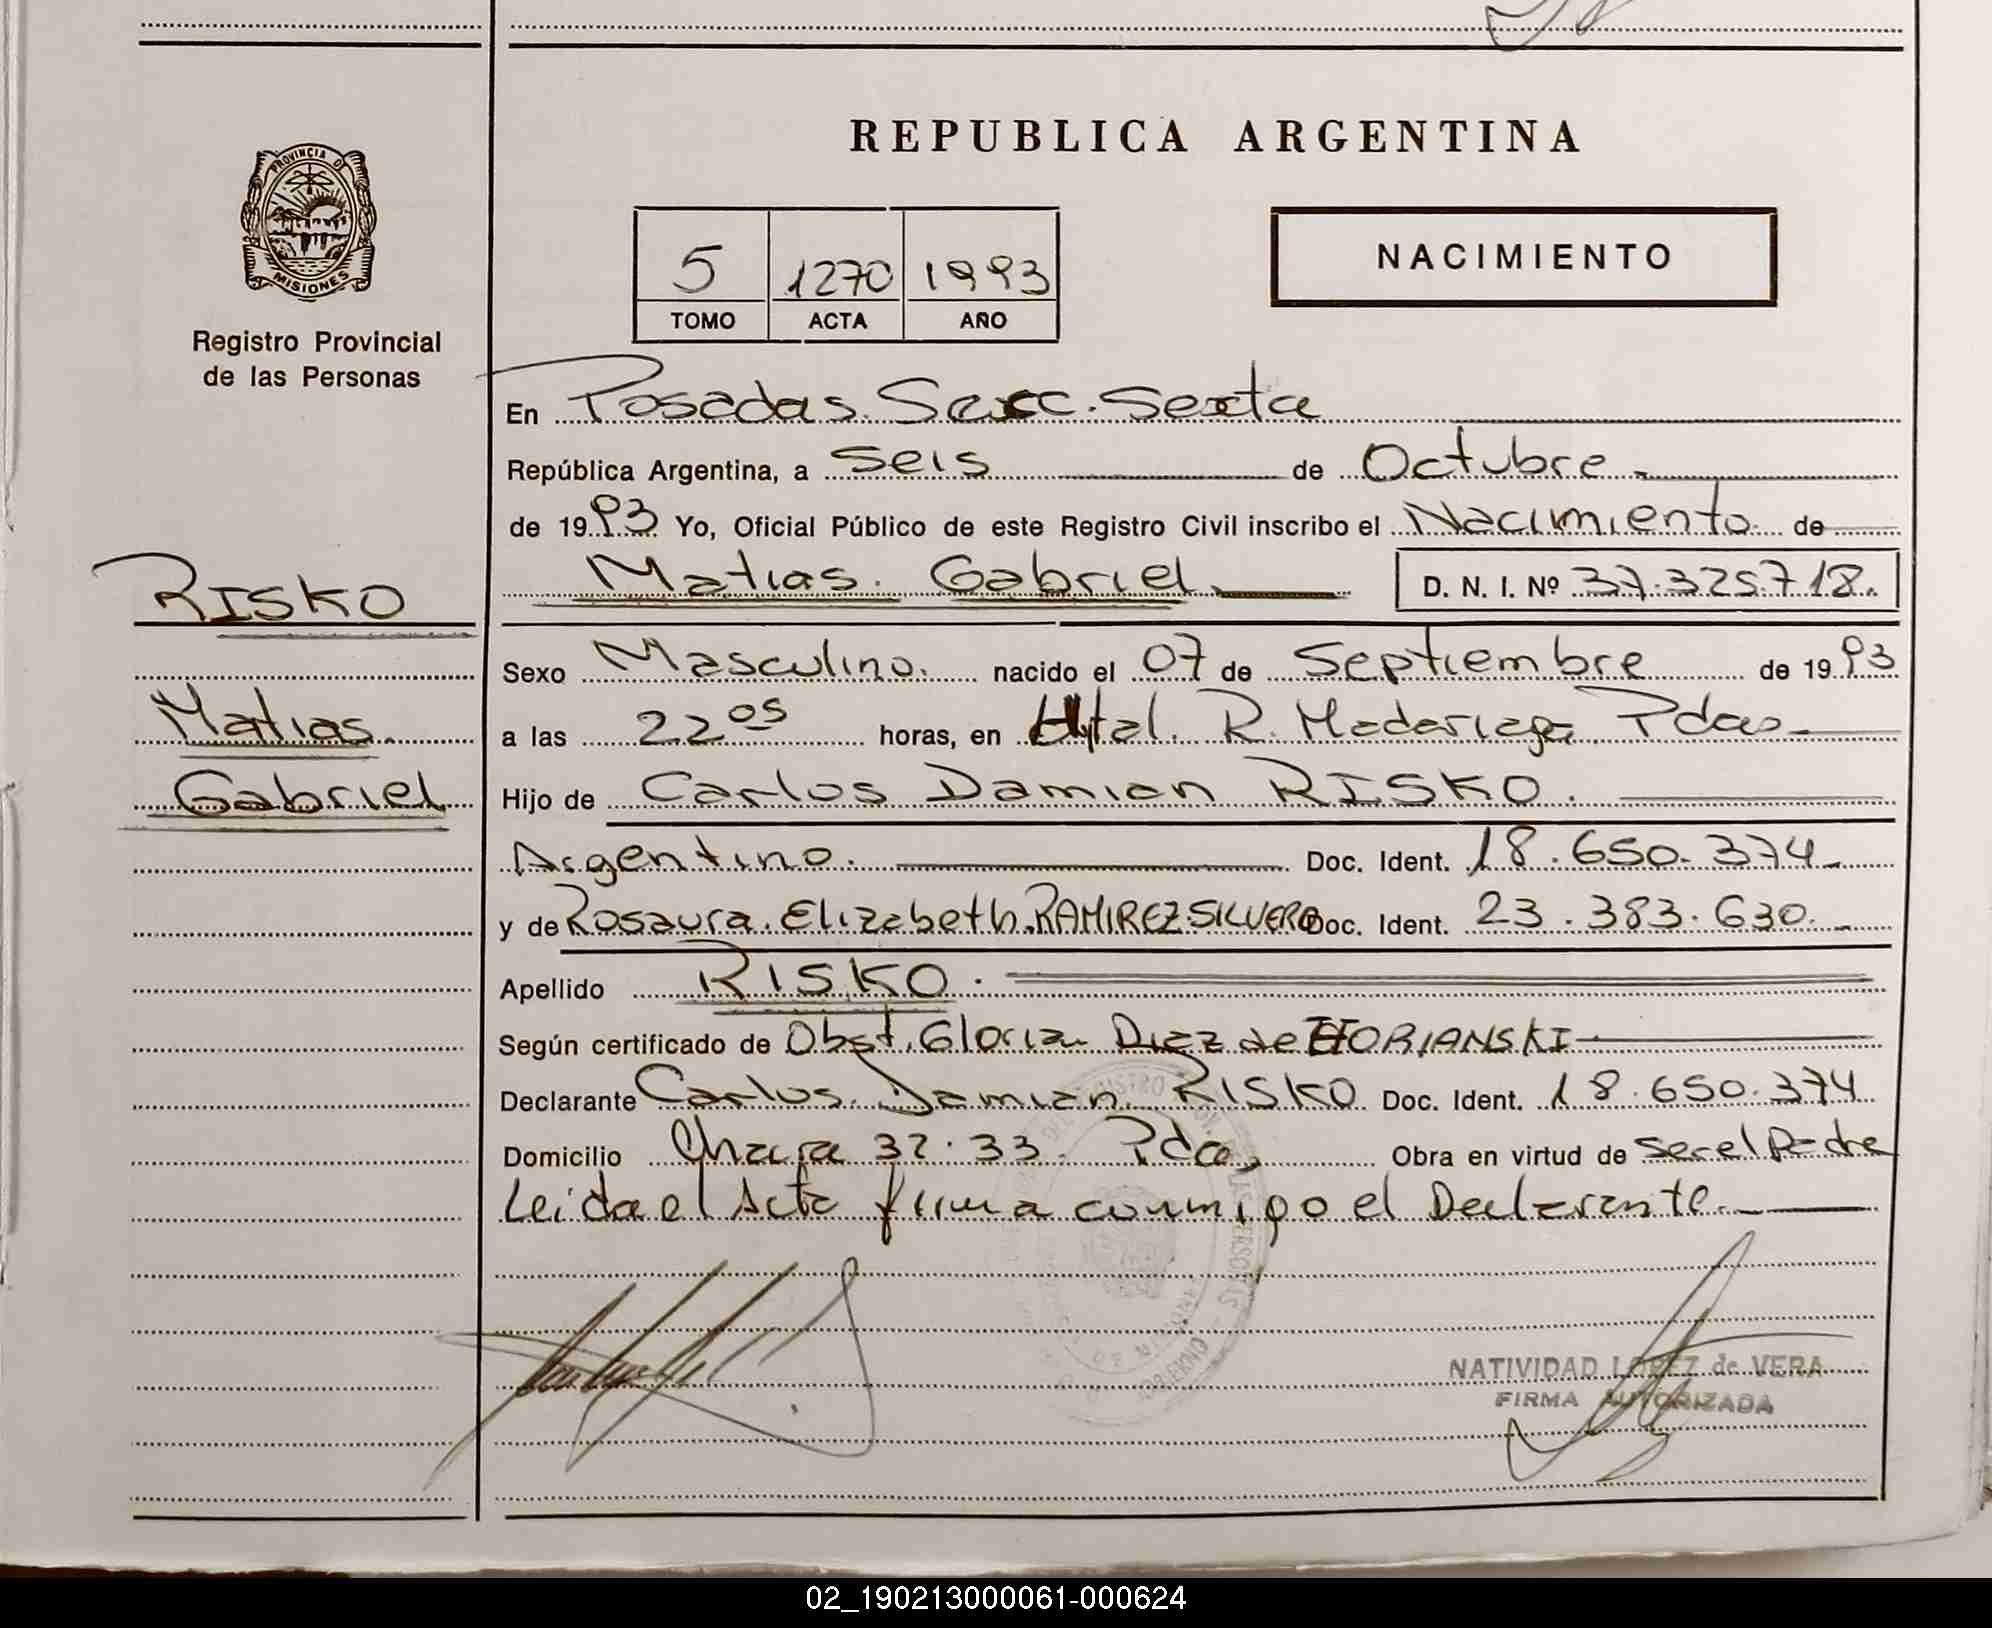 PROVINCIA D
MISIONES
Registro Provincial
de las Personas
RISKO
Matias
Gabriel
REPUBLICA ARGENTINA
5 1270 1993
TOMO ACTA AÑO
NACIMIENTO
En Posadas. Secc. Sexta
República Argentina, a Seis de Octubre
de 1993 Yo, Oficial Público de este Registro Civil inscribo el Nacimiento de
Matias. Gabriel D. N. I. Nº 37.325.718.
Sexo Masculino. nacido el 07 de Septiembre de 1993
a las 22 05 horas, en Hptal. R. Madariaga Pdas
Hijo de Carlos Damian RISKO.
Argentino. Doc. Ident. 18.650.374
y de Rosaura. Elizabeth. RAMIREZ SILVERO Doc. Ident. 23.383.630.
Apellido RISKO.
Según certificado de Obst. Gloria Diaz de HORIANSKI
Declarante Carlos. Damian. RISKO Doc. Ident. 18.650.374
Domicilio Chacra 32-33. Pdas Obra en virtud de ser el Padre
Leida el Acta firma conmigo el Declarante.
NATIVIDAD LOPEZ de VERA
FIRMA AUTORIZADA
02_190213000061-000624